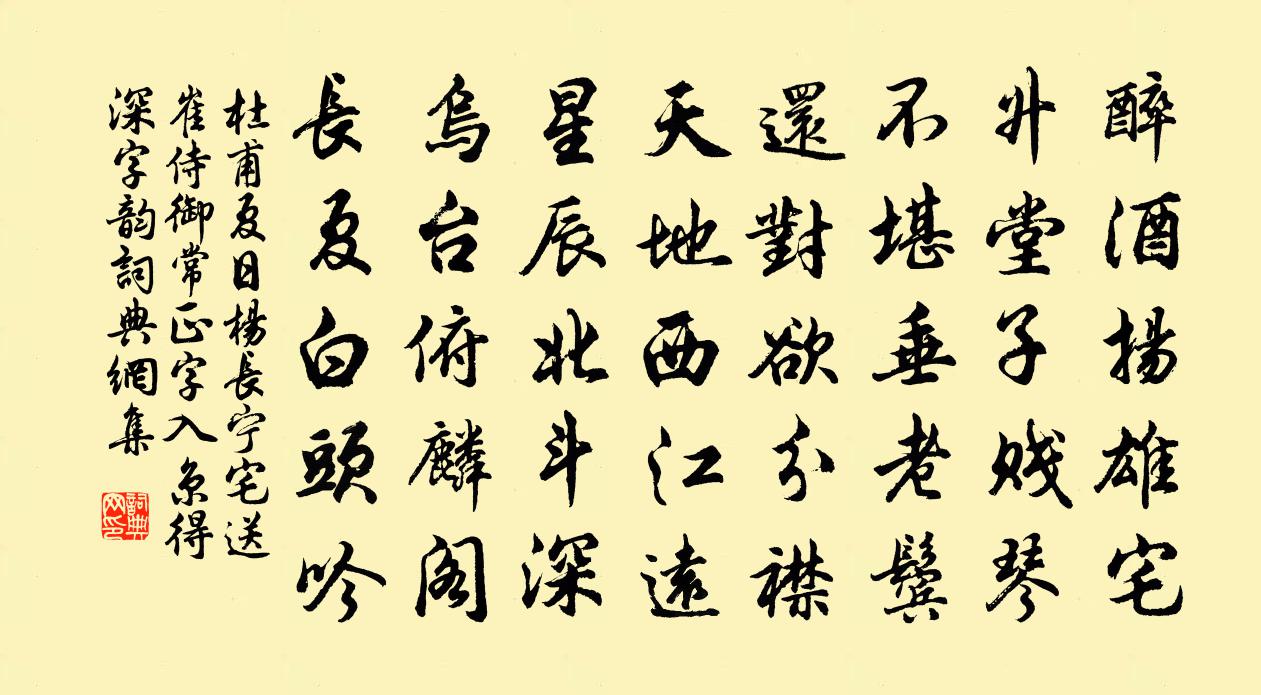 醉酒揚雄宅
升堂子賤琴
不堪垂老鬢
還對欲分襟
天地西江遠
星辰北斗深
烏台俯麟閣
長夏白頭吟
杜甫夏日楊長宁宅送
崔侍御常正字入京得
深字韵詞典網集
詞典
网印